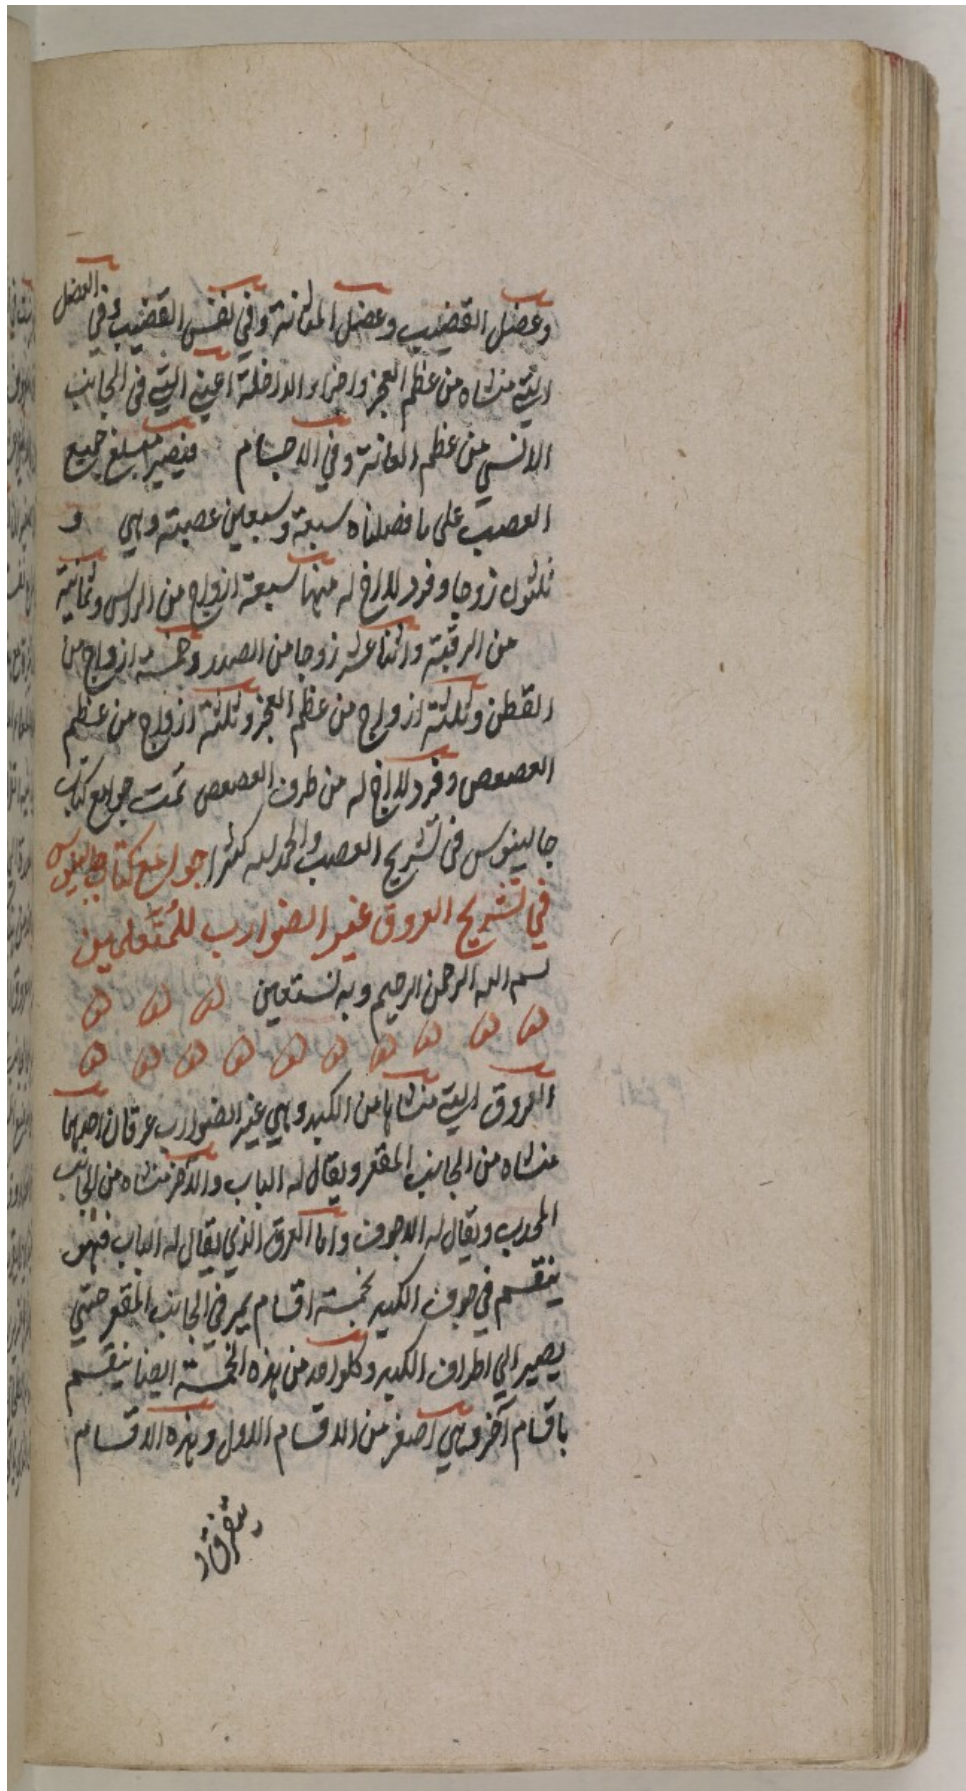 وعضل القضيب وعضل المثانة وفي نفس القضيب وفي العضل
التي منشاه من عظم العجز واجزاء الداخلة اعني التي في الجانب
الانسي من عظم العانة وفي الاجسام فيصير مبلغ جميع
العصب على ما فصلناه سبعة وسبعين عصبة وهي و
ثلثون زوجا وفرد لا اخ له منها سبعة ازواج من الراس وثمانية
من الرقبة واثنا عشر زوجا من الصدر وخمسة ازواج من
القطن وثلثة ازواج من عظم العجز وثلثة ازواج من عظم
العصعص وفرد لا اخ له من طرف العصعص تمت جوامع كتاب
جالينوس في تشريح العصب والحمد لله كثيرا جوامع كتاب جالينوس
في تشريح العروق غير الضوارب للمتعلمين
بسم الله الرحمن الرحيم وبه نستعين
العروق التي منشاها من الكبد وهي غير الضوارب عرقان احدهما
منشاه من الجانب المقعر ويقال له الباب والآخر منشاه من الجانب
المحدب ويقال له الاجوف واما العرق الذي يقال له الباب فهو
ينقسم في جوف الكبد بخمسة اقسام يمر في الجانب المقعر حتي
يصير الي اطراف الكبد وكلواحد من هذه الخمسة ايضا ينقسم
باقسام آخر وهي اصغر من الاقسام الاول وهذه الاقسام